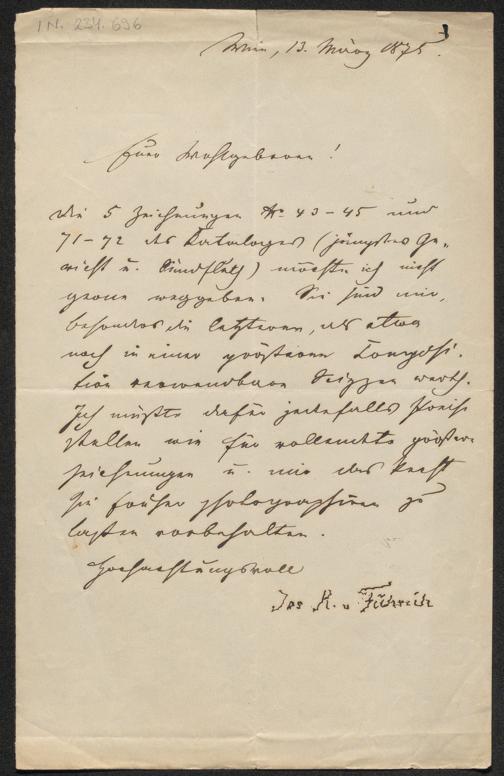 IN. 234.696
1
Wien, 13. März 1875.
Euer Wohlgeboren!
Die 5 Zeichnungen No 43–45 und
71–72 des Kataloges (jüngstes Ge„
richt u. Sündfluth) möchte ich nicht
gerne weggeben. Sie sind mir,
besonders die letzteren, als etwa
noch in einer größeren Composi-
tion verwendbare Skizzen werth.
Ich müßte dafür jedenfalls Preise
stellen wie für vollendete größere
Zeichnungen u. mir das Recht
sie früher photographiren zu
lassen vorbehalten.
Hochachtungsvoll
Jos R. v Führich